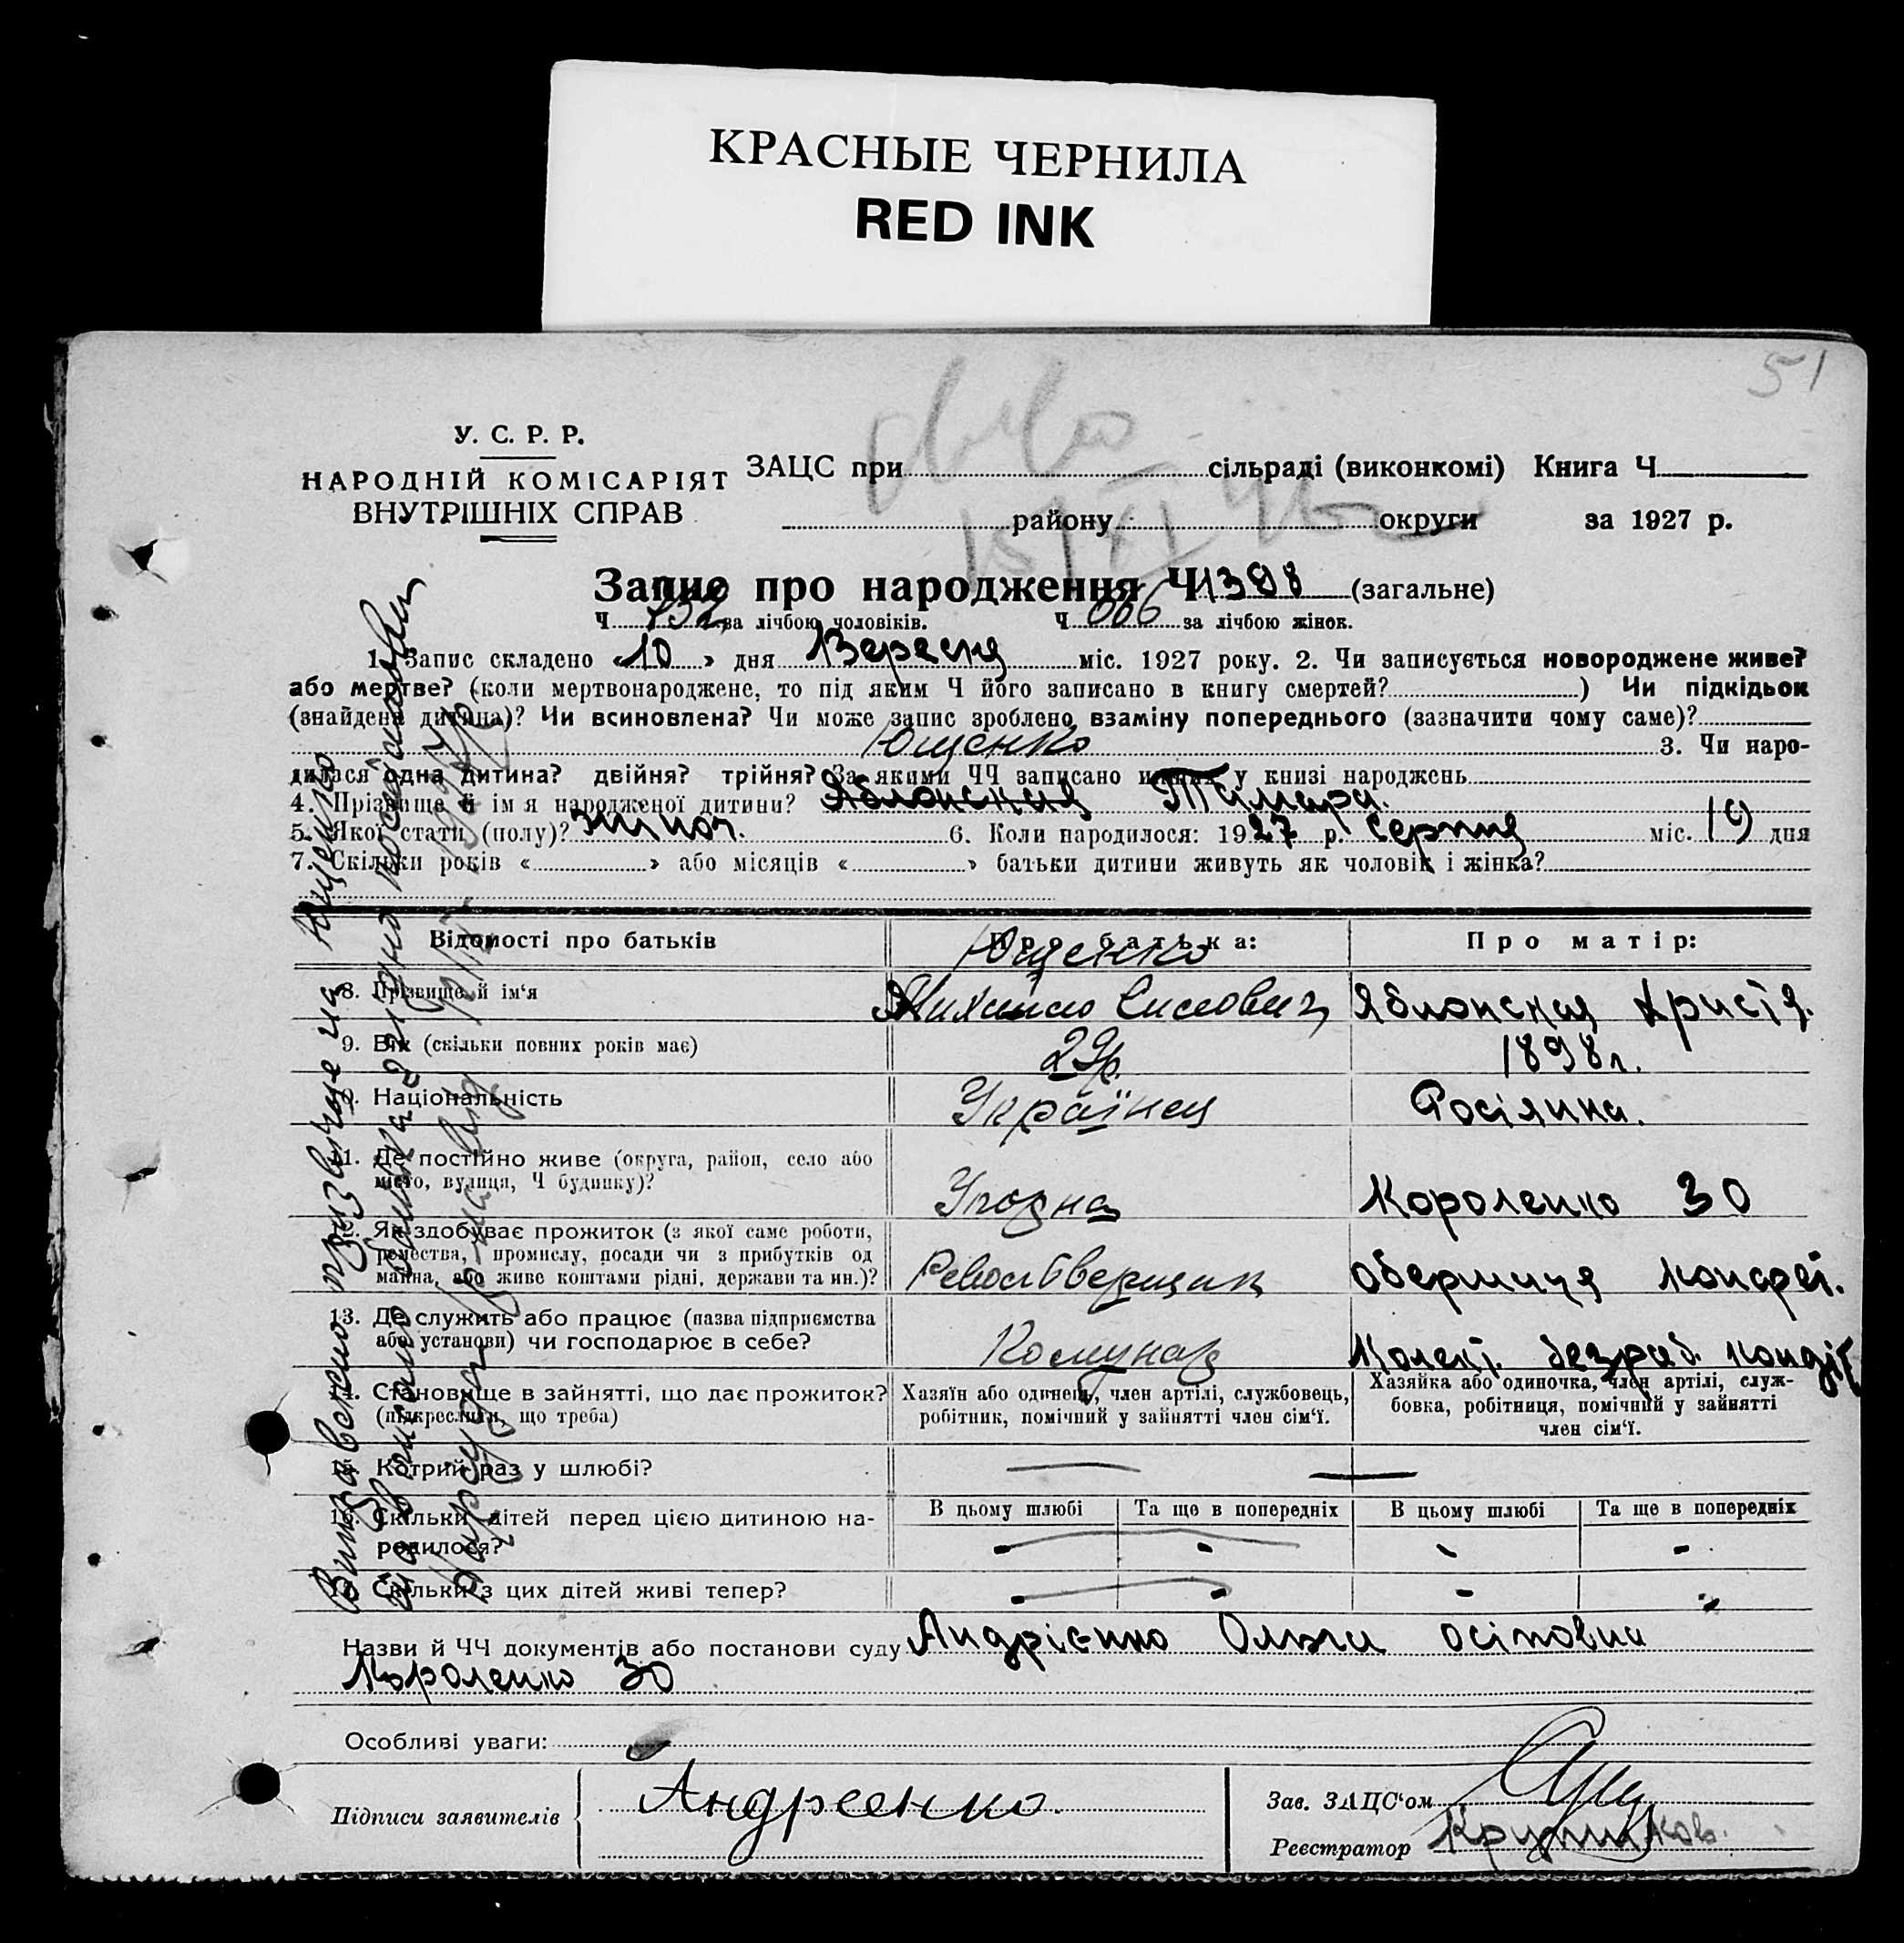 КРАСНЫЕ ЧЕРНИЛА
RED INK
51
У. С. Р. Р.
НАРОДНІЙ КОМІСАРІЯТ
ВНУТРІШНІХ СПРАВ
ЗАЦС при сільраді (виконкомі) Книга Ч
району округи за 1927 р.
Запис про народження Ч 1398 (загальне)
Ч 732 за лічбою чоловіків. Ч 666 за лічбою жінок.
1. Запис складено «10» дня Вересня міс. 1927 року. 2. Чи записується новороджене живе?
або мертве? (коли мертвонароджене, то під яким Ч його записано в книгу смертей? ) Чи підкідьок
(знайдена дитина)? Чи всиновлена? Чи може запис зроблено взаміну попереднього (зазначити чому саме)?
Ющенко 3. Чи наро-
дилася одна дитина? двійня? трійня? За якими ЧЧ записано инших у книзі народжень
4. Прізвище й ім'я народженої дитини? Яблонская Тамара.
5. Якої стати (полу)? жіноч. 6. Коли народилося: 1927 р. серпня міс. 19 дня
7. Скільки років « » або місяців « » батьки дитини живуть як чоловік і жінка?
Відомості про батьків
Про батька:
Про матір:
Ющенко
8. Прізвище й ім'я
Михайло
Яблонская Христя.
9. Вік (скільки повних років має)
29 р.
1898 г.
Національність
Українец
Росіянка.
11. Де постійно живе (округа, район, село або
місто, вулиця, Ч будинку)?
Короленко 30
12. Як здобуває прожиток (з якої саме роботи,
ремества, промислу, посади чи з прибутків од
майна, або живе коштами рідні, держави та ин.)?
Револьверщик
обермиця конфет.
13. Де служить або працює (назва підприємства
або установи) чи господарює в себе?
Комунар
Колект. безраб.
14. Становище в зайнятті, що дає прожиток?
(підкреслити, що треба)
Хазяїн або одинець, член артілі, службовець,
робітник, помічний у зайнятті член сім'ї.
Хазяйка або одиночка, член артілі, служ-
бовка, робітниця, помічний у зайнятті
член сім'ї.
Котрий раз у шлюбі?
16. Скільки дітей перед цією дитиною на-
родилося?
В цьому шлюбі
Та ще в попередніх
В цьому шлюбі
Та ще в попередніх
Скільки з цих дітей живі тепер?
Назви й ЧЧ документів або постанови суду Андрієнко Ольга Осіповна
Короленко 30
Особливі уваги:
Підписи заявителів
Андреенко.
Зав. ЗАЦС'ом
Реєстратор
прізвище на Ющенко
батька згідно постанови
Нарсуда